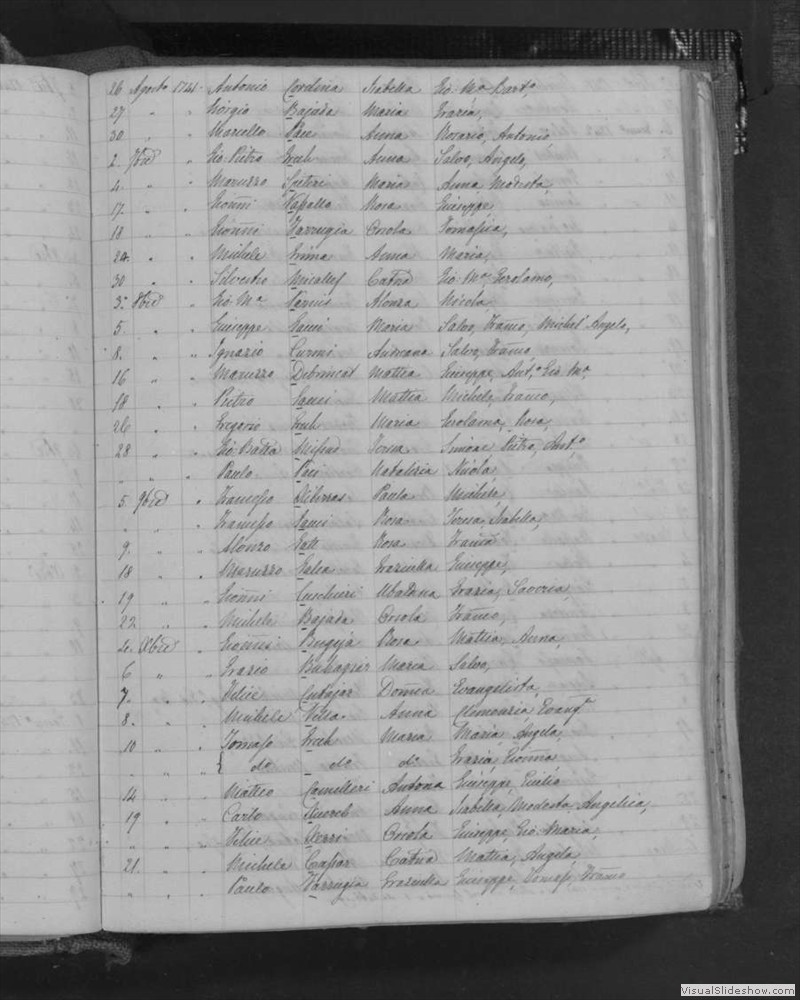 26 Agosto 1741. Antonio Cordina Isabella Gio: Ma. Bart.o
27 " " Giorgio Bajada Maria Grazia,
30 " " Marcello Pace Anna Rosario, Antonio
2. 7bre " Gio: Pietro Grech Anna Salvo, Angelo,
4. " " Maruzzo Spiteri Maria Anna, Modesta,
17. " " Gionni Rosa Giuseppe,
18 " " Gionni Farrugia Orsola Tomasica,
24. " " Michele Grima Anna Maria,
30 " " Silvestro Micallef Catna Gio: Ma. Gerolamo,
3. 8bre " Gio: Ma. Alonza Nicola,
5 " " Giuseppe Sacci Maria Salvo, Franco, Michel' Angelo,
8. " " Ignazio Curmi Salvo, Franco
16 " " Maruzzo Debrincat Mattia Giuseppe, Ant.o Gio: Ma.
18 " Pietro Sacci Mattia Michele, Franco,
26 " " Gregorio Grech Maria Gerolama, Rosa,
28 " " Gio: Batta Misud Teresa Simone Pietro, Ant.o
" " " Paulo Paci Natalizia Nicola
5. 9bre " Francesco Paula Michele,
" " " Francesco Sacci Rosa Teresa, Isabella,
9. " " Alonzo Galt Rosa Franca
18 " " Maruzzo Galea Graziulla Giuseppe,
19 " " Gionni Cuschieri Ubaldina Grazia, Saveria,
22 " " Michele Bajada Orsola Franco,
4. Xbre " Gionni Bugeja Rosa Mattia, Anna,
6 " " Grazio Buhagiar Maria Salvo,
7. " " Felice Cutajar Donna Evangelista,
8. " " Michele Vella Anna Clemenzia, Evang.ta
10 " " Tomaso Grech Maria Maria, Angela,
" " " { do do do Grazia, Gionna
14 " " Matteo Camilleri Antona Giuseppe, Giulio
19 " " Carlo Anna Isabella, Modesta, Angelica,
" " " Felice Orsola Giuseppe, Gio: Maria,
21. " " Michele Caffar Catna Mattia, Angela,
" " " Paulo Farrugia Grazulla Giuseppe, Tomaso, Franco
VisualSlideshow.com